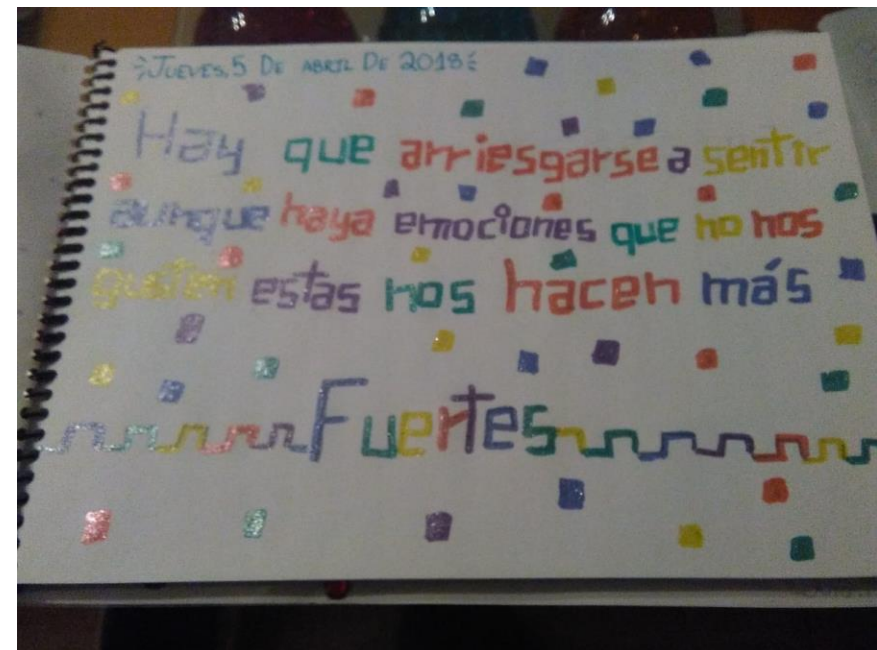 JUEVES, 5 DE ABRIL DE 2018
Hay que arriesgarse a sentir
aunque haya emociones que no nos
gusten estas nos hacen más
Fuertes